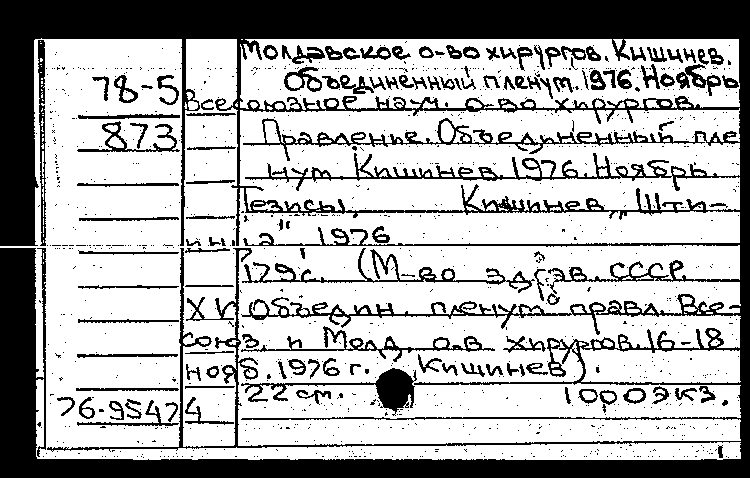 Молдавское о-во хирургов. Кишинев.
78-5 Объединенный пленум. 1976. Ноябрь
Всесоюзное науч. о-во хирургов.
873 Правление. Объединенный пле
нум. Кишинев. 1976. Ноябрь.
Тезисы. Кишинев, „Шти-
инца", 1976.
179с. (М-во здрав. СССР.
XV Объедин. пленум правл. Все-
союз. и Молд. о-в хирургов. 16-18
нояб. 1976 г. Кишинев).
22 см. 1000экз.
76-95474